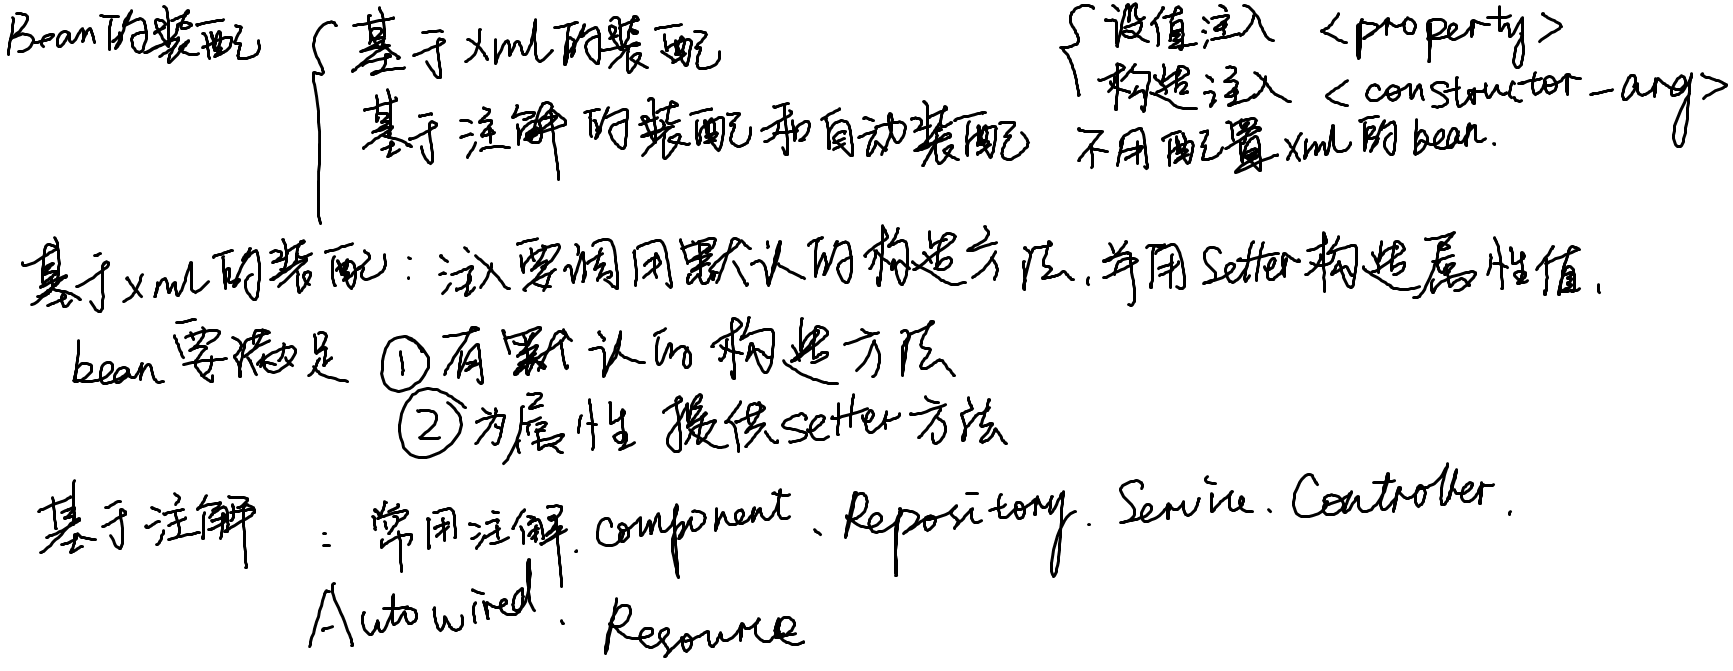 Bean的装配 { 基于xml的装配 { 设值注入 <property>
构造注入 <constructor-arg>
基于注解的装配和自动装配 不用配置xml的bean.
基于xml的装配：注入要调用默认的构造方法,并用setter构造属性值.
bean要满足 ①有默认的构造方法
②为属性提供setter方法
基于注解 : 常用注解. component、Repository. Service. Controller.
Autowired. Resource